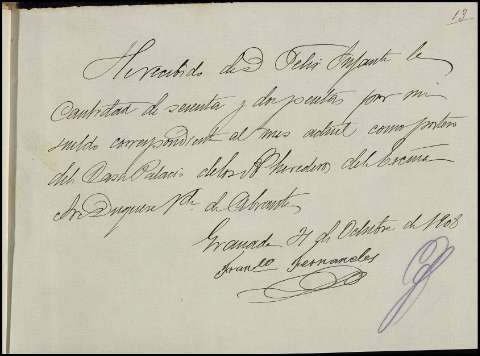 13
He recibido de D Felix Infante la
cantidad de sesenta y dos pesetas por mi
sueldo correspondiente al mes actual como portero
del Casa Palacio de los Herederos del Excma
Sra Duquesa Vda de Abrantes
Granada 31 de Octubre de 1908
Franco Fernandes